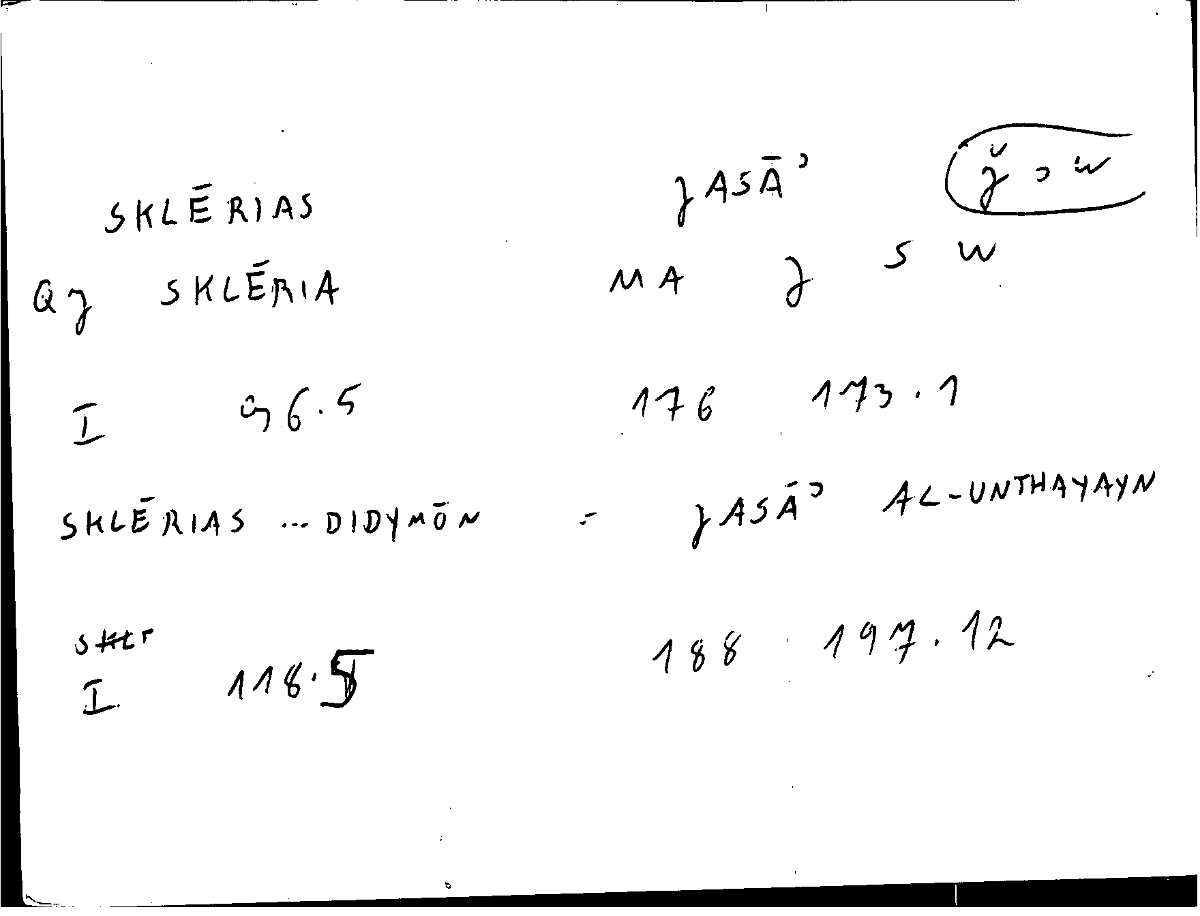 SKLĒRIAS JASĀʾ ǰ ʾ w
QJ SKLĒRIA MA J S W
I 96.5 176 173.1
SKLĒRIAS ... DIDYMŌN = JASĀʾ AL-UNTHAYAYN
I 118.5 188 197.12